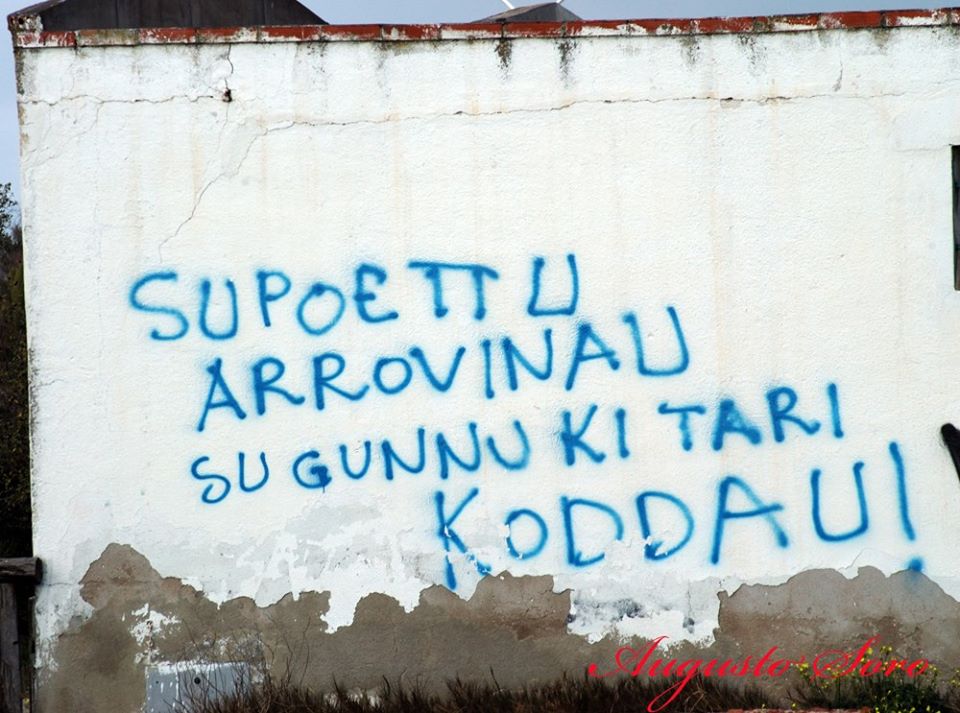 SU POETTU
ARROVINAU
SU GUNNU KI TARI
KODDAU!
Augusto Soro